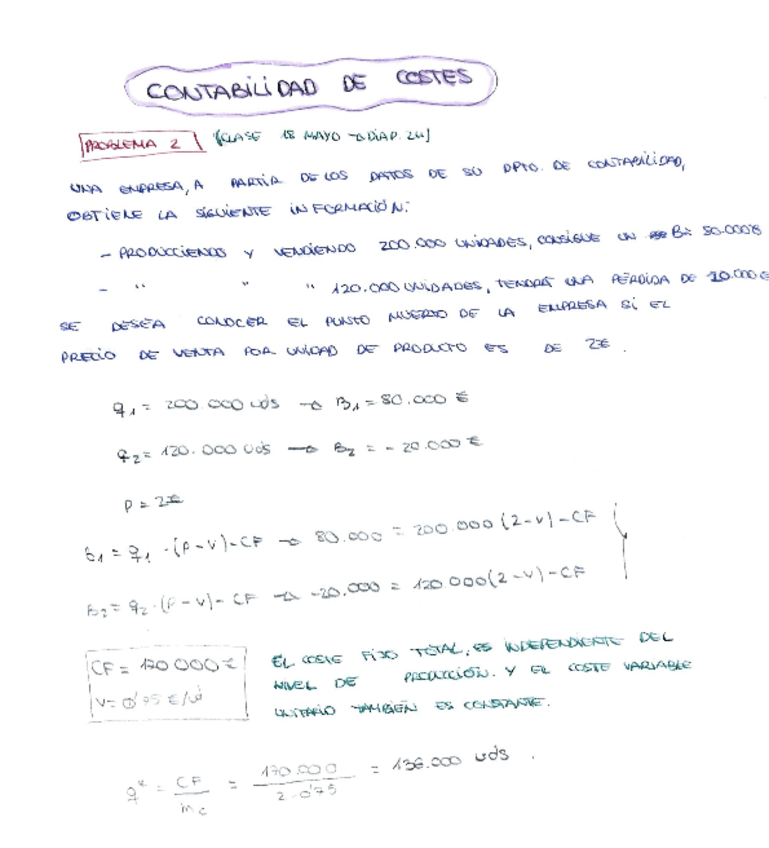 CONTABILIDAD DE COSTES
PROBLEMA 2 (CLASE 18 MAYO → DIAP. 24)
UNA EMPRESA, A PARTIR DE LOS DATOS DE SU DPTO. DE CONTABILIDAD,
OBTIENE LA SIGUIENTE INFORMACIÓN:
- PRODUCCIENDO Y VENDIENDO 200.000 UNIDADES, CONSIGUE UN Bº 80.000€
- " " " 120.000 UNIDADES, TENDRÁ UNA PÉRDIDA DE 20.000 €
SE DESEA CONOCER EL PUNTO MUERTO DE LA EMPRESA SI EL
PRECIO DE VENTA POR UNIDAD DE PRODUCTO ES DE 2€.
q1 = 200.000 uds → B1 = 80.000 €
q2 = 120.000 uds → B2 = - 20.000 €
P = 2€
B1 = q1 · (P-V) - CF → 80.000 = 200.000 (2-V) - CF
B2 = q2 · (P-V) - CF → -20.000 = 120.000 (2-V) - CF
CF = 170.000 €
V = 0'75 €/ud
EL COSTE FIJO TOTAL, ES INDEPENDIENTE DEL
NIVEL DE PRODUCCIÓN. Y EL COSTE VARIABLE
UNITARIO TAMBIÉN ES CONSTANTE.
q* = CF / mc = 170.000 / 2-0'75 = 136.000 uds.